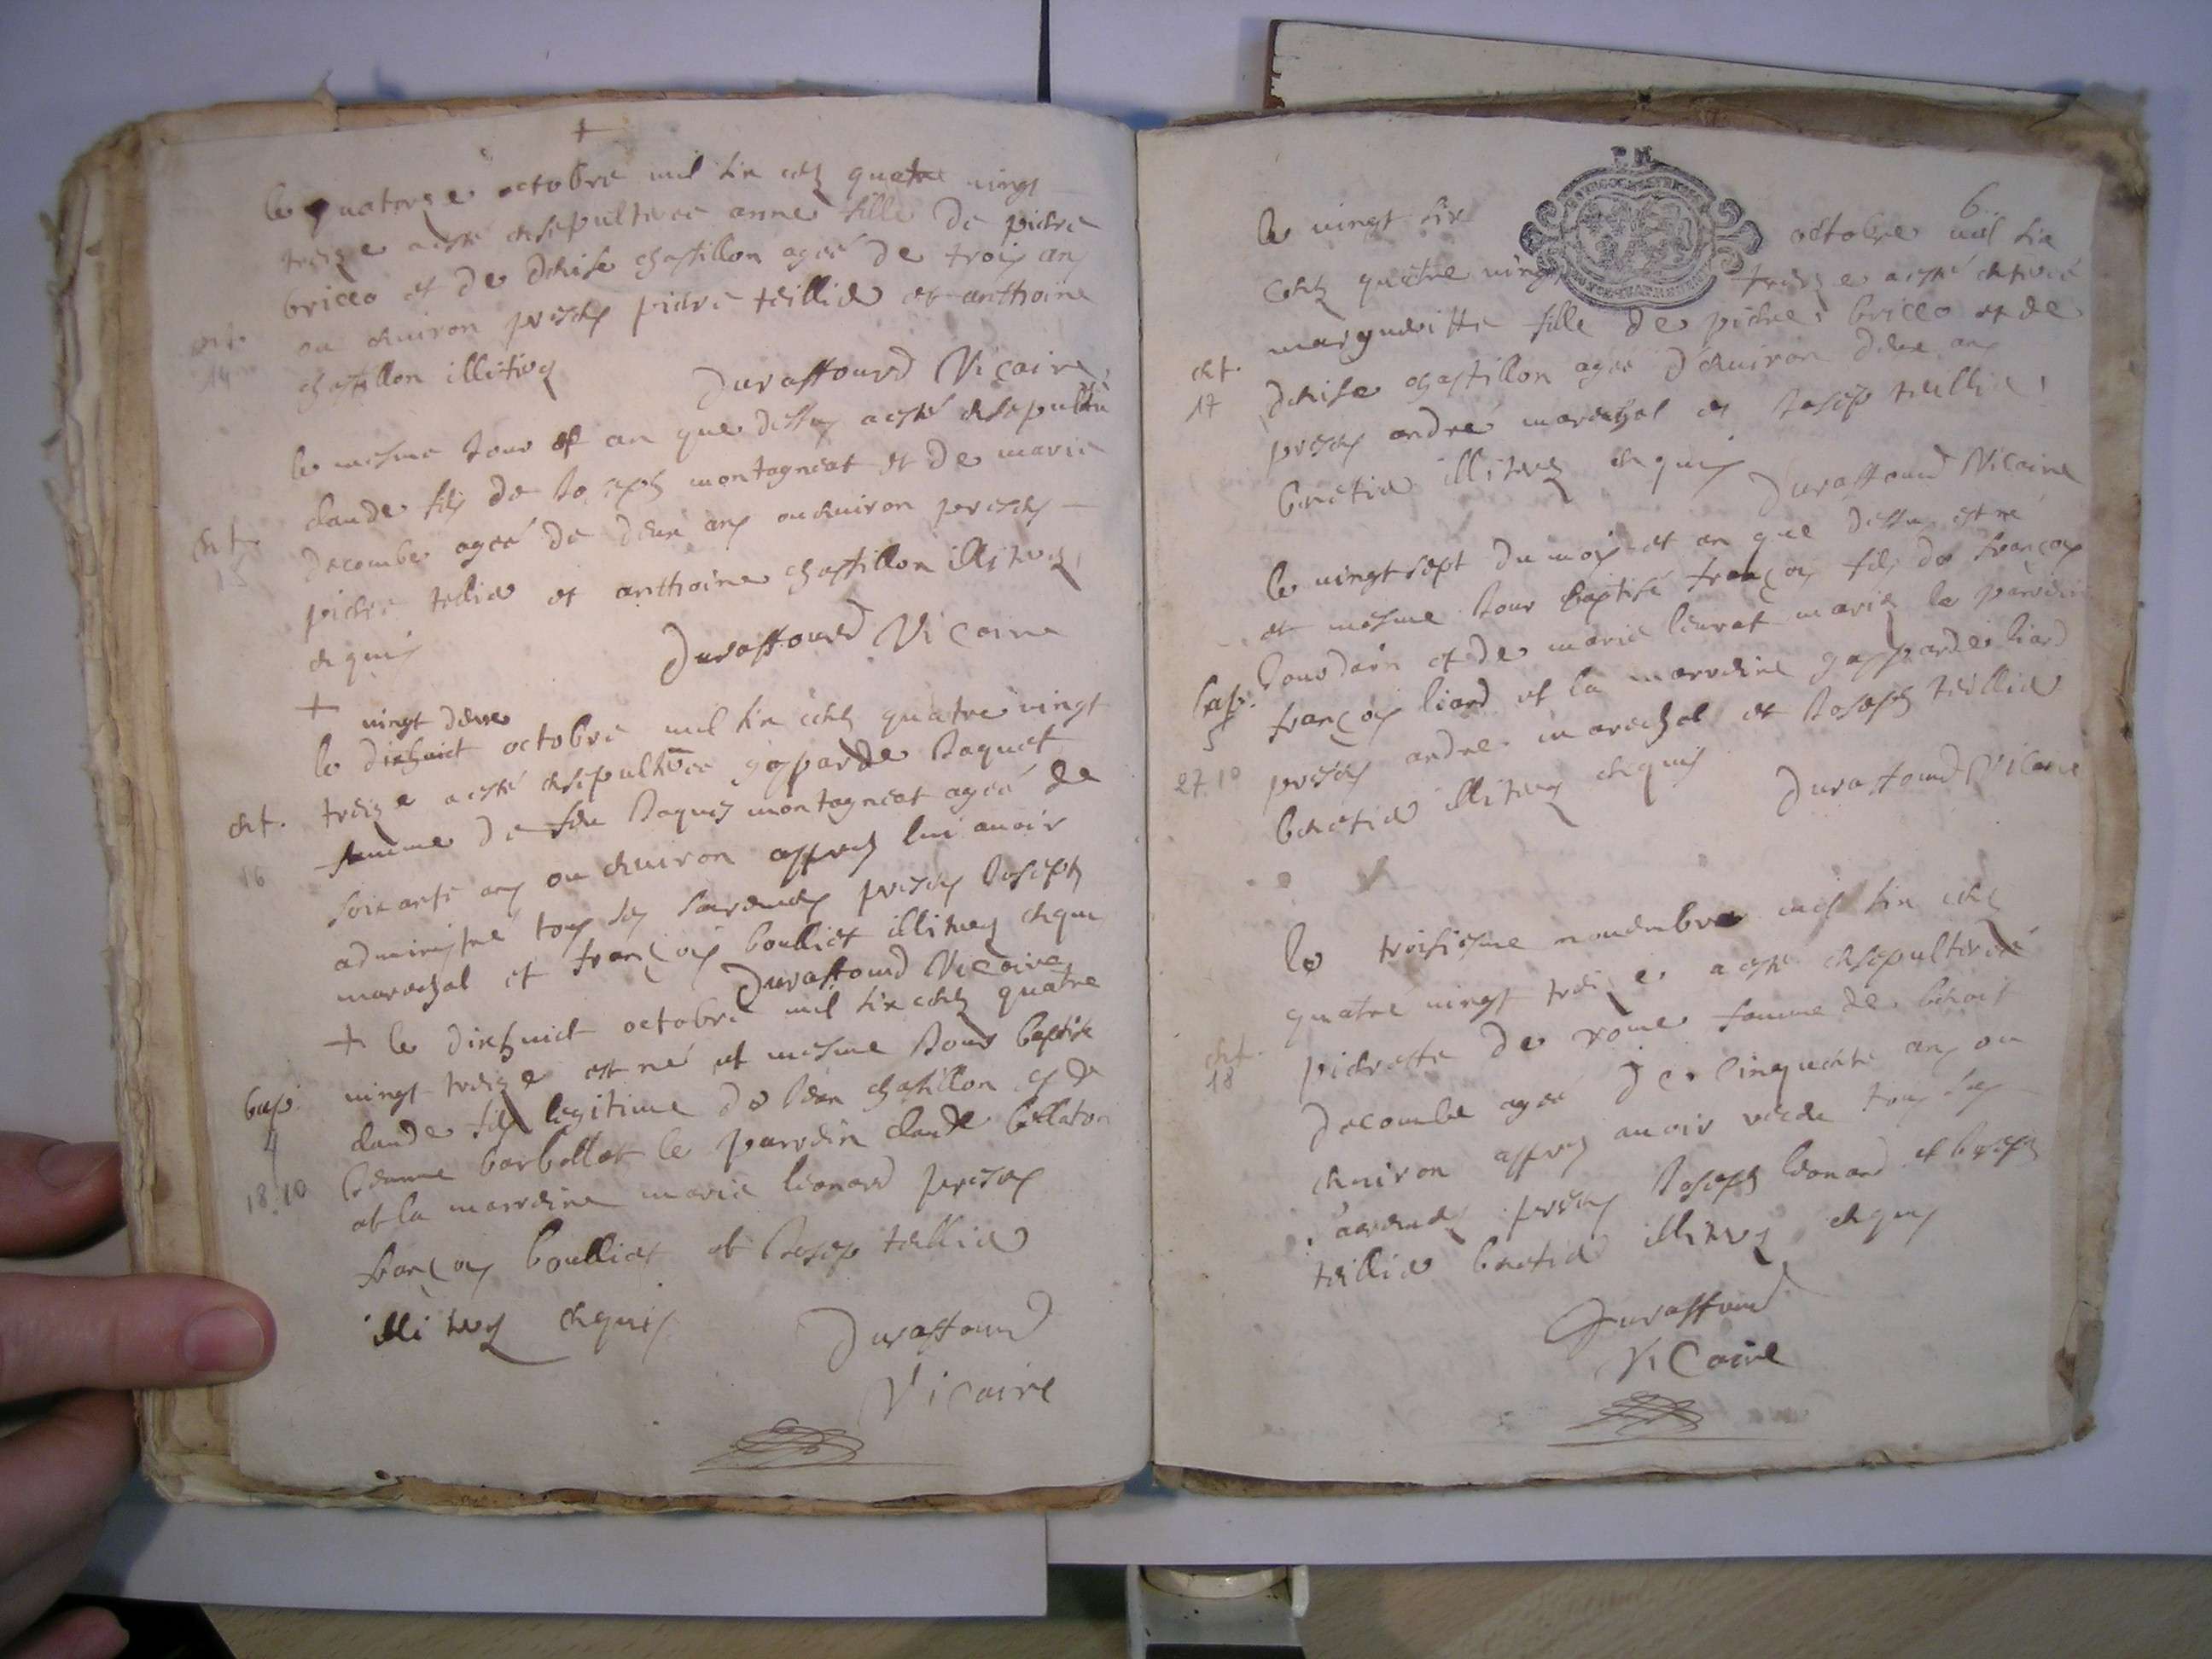 +
le quatorze octobre mil six cens quatre vingt
treize a esté ensepulturée anne fille de pierre
bricco et de denise chastillon agée de trois ans
ou environ presens pierre teillier et anthoine
ent.
14
chastillon illiterez
Duraffourd Vicaire
le mesme Jour et an que dessus a esté ensepultu
claude fils de Joseph montagneat et de marie
ent.
15
decombe ageé de deux ans ou environ presens
pierre telier et anthoine chastillon illiterez
enquis
Duraffourd Vicaire
+ vingt deux
le dixhuict octobre mil six cens quatre vingt
ent.
16
treize a esté ensepulturee gasparde Jaquet
femme de feu Jaques montagneat ageé de
soixante ans ou environ appres lui avoir
administré tous ses sacremens presens Joseph
marechal et françois boulliet illiterez enquis
Duraffourd Vicaire
+ le dixhuict octobre mil six cens quatre
bap.
4
18.10
vingt treize est né et mesme Jour baptisé
claude fils legitime de Jean chastillon et de
Jeanne barbollat le parrein claude
et la marreine marie lionard presens
françois boulliet et Josep tellier
illiterez enquis
Duraffourd
Vicaire
6
le vingt six octobre mil six
cens quatre vingt treize a esté enterée
margueritte fille de pierre bricco et de
ent.
17
denise chastillon agée d'environ deux ans
presens andré marechal et Josep teillier
benetier illiterez enquis
Duraffourd Vicaire
le vingt sept du mois et an que dessus est né
et mesme Jour baptisé françois fils de françois
bap.
5
27.10
Jourdain et de marie leurat mariez le parrein
françois liard et la marreine gasparde liard
presens andre marechal et Joseph teillier
benetier illiterez enquis
Duraffourd Vicaire
le troisiesme novembre mil six cens
quatre vingt treize a esté ensepulturée
ent.
18
pierrette de rome femme de benoit
decombe agée de cinquente ans ou
environ appres avoir receu tous ses
sacremens presens Joseph lionard et Joseph
teillier benetier illiterez enquis
Duraffourd
Vicaire